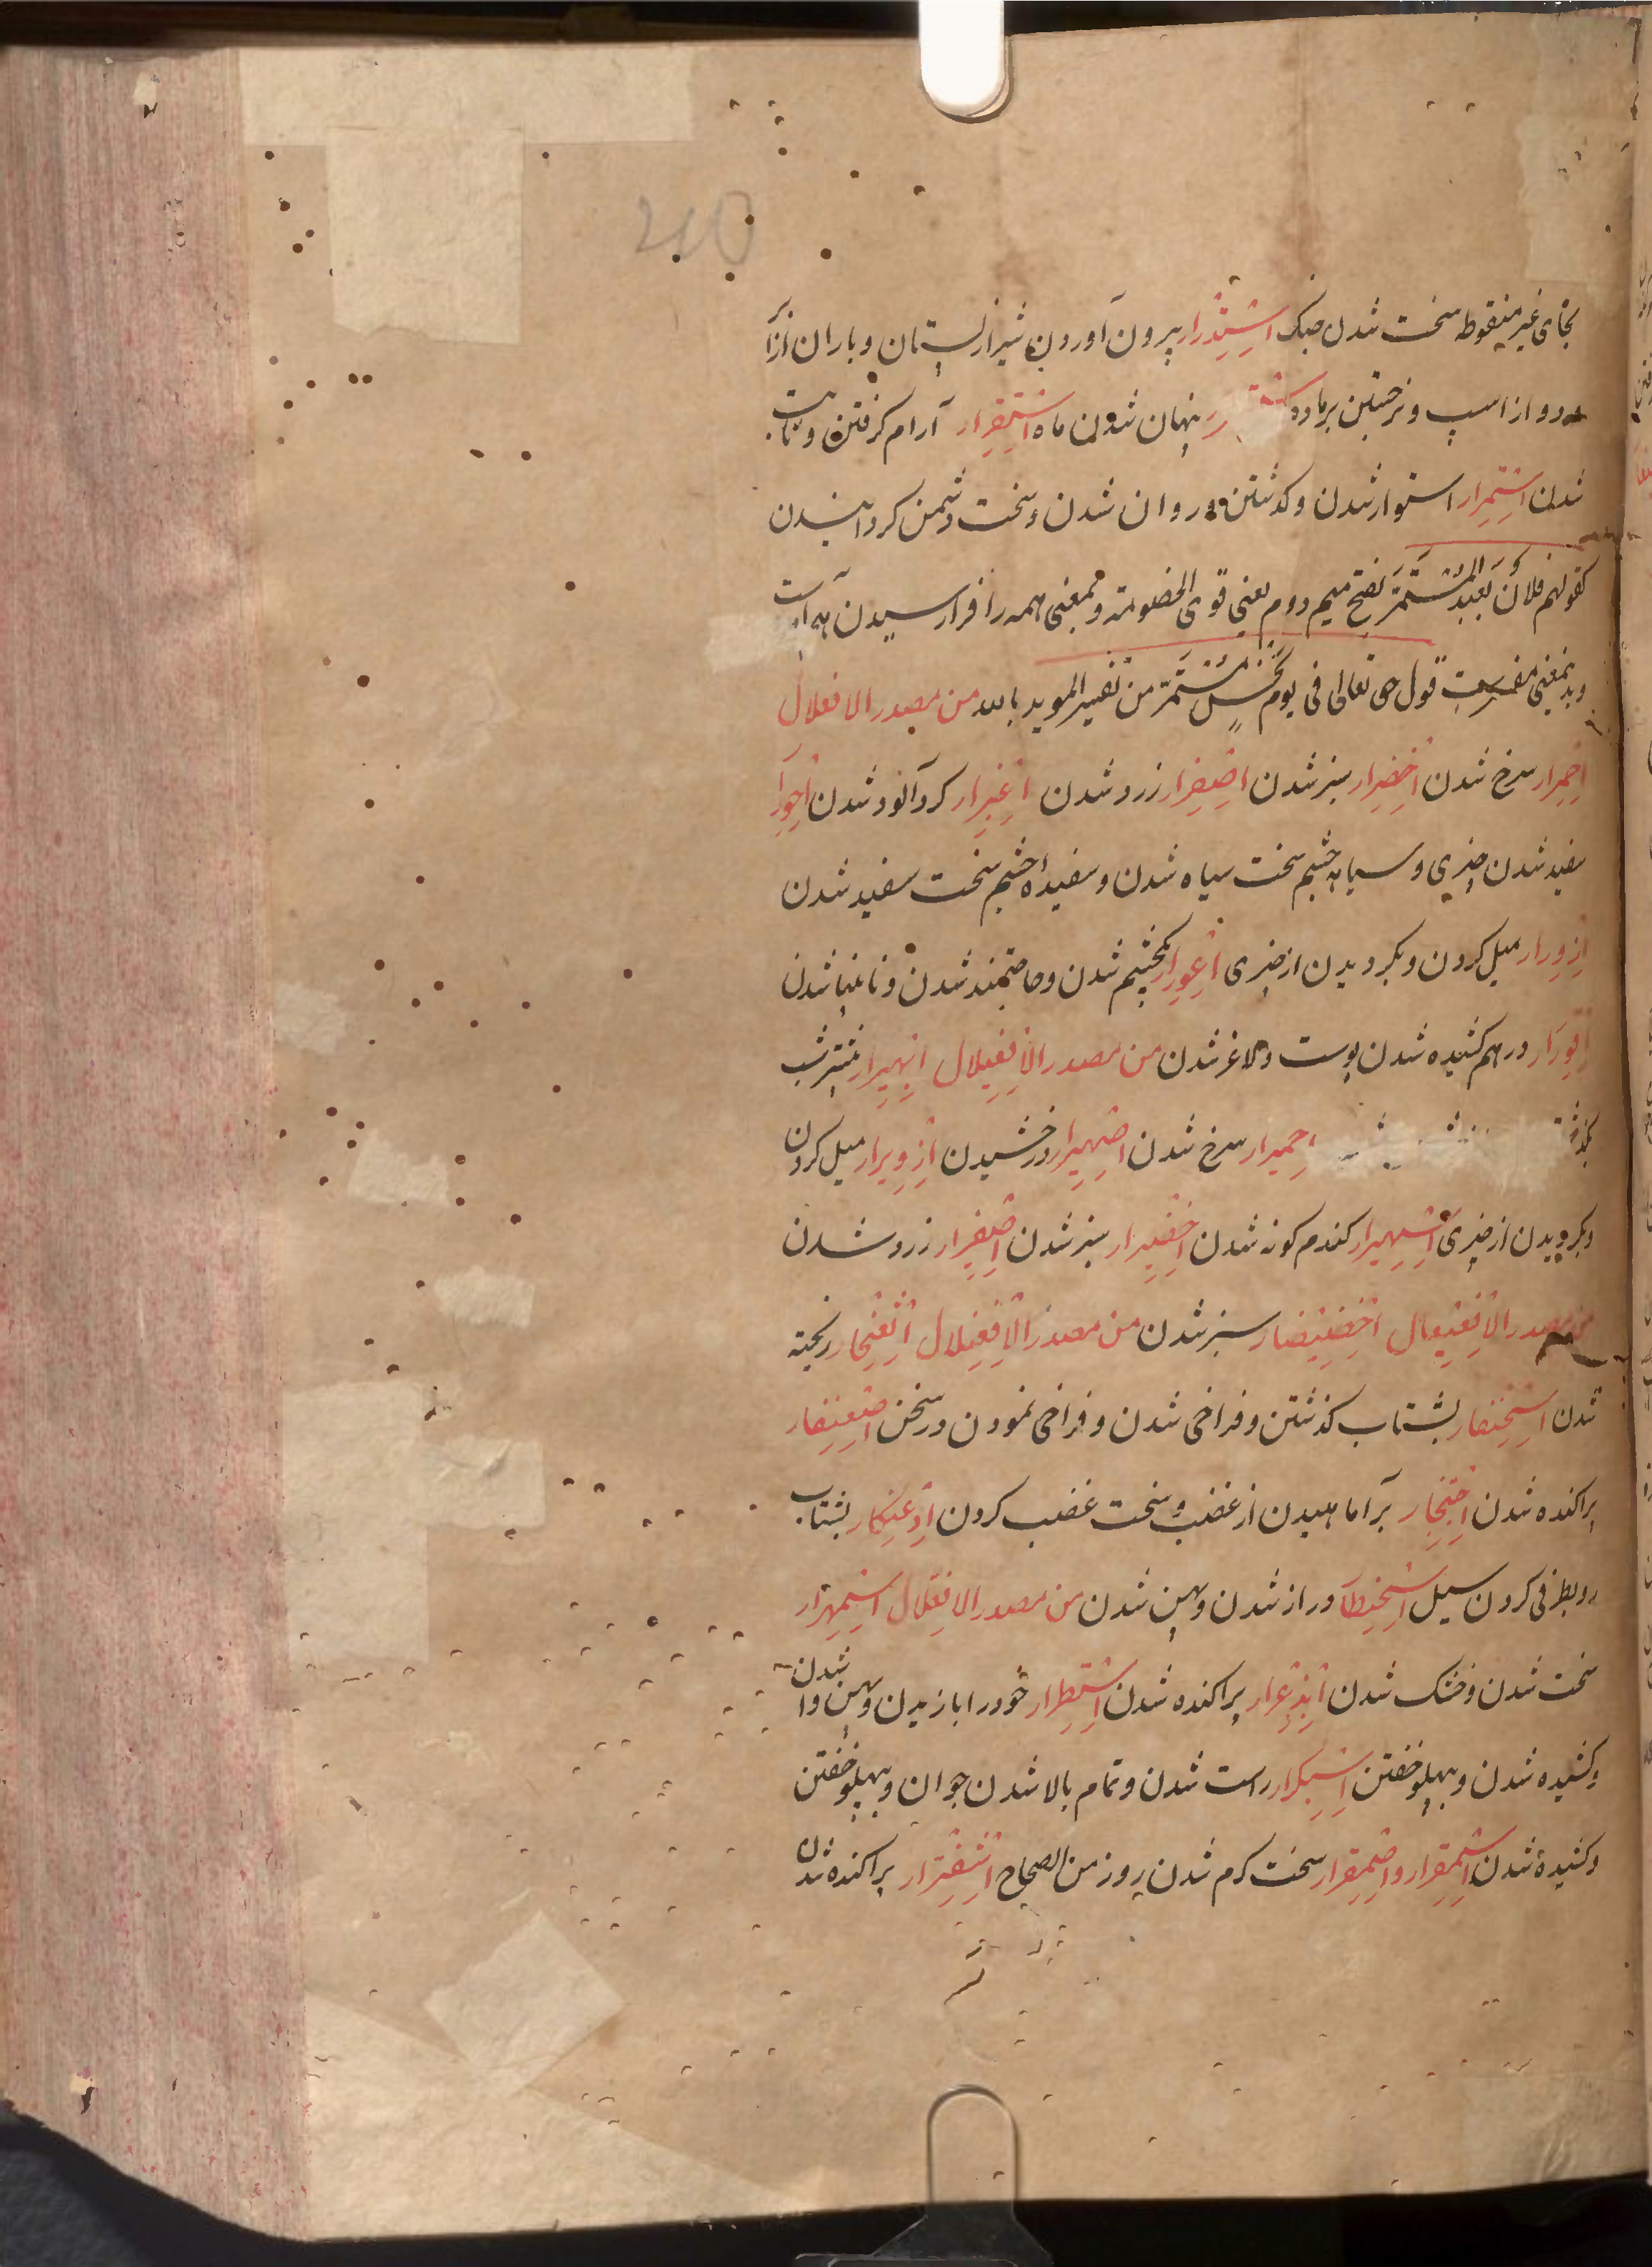 بحای غیر منقوطه سخت شدن جنک استدرار بیرون آوردن شیر از پستان و باران از ابر
و دو از اسپ و برجستن بر ماده پنهان شدن ماه استقرار آرام کرفتن و ثابت
شدن استمرار استوار شدن و کذشتن و روان شدن و سخت دشمن کردانیدن
کقولهم فلان لبعید المستمر بفتح میم دوم یعنی قوی الخصومة و بمعنی همه را فرا رسیدن هم آمده است
و بدین معنی مفسر است قول حق تعالی فی یوم نحس مستمر من تفسیر الموید بالله من مصدر الافعلال
احمرار سرخ شدن اخضرار سبز شدن اصفرار زرد شدن اغبرار کرد آلود شدن احورار
سفید شدن چیزی و سیاهی چشم سخت سیاه شدن و سفیدی چشم سخت سفید شدن
ازورار میل کردن و بکردیدن از چیزی اعورار یکچشم شدن و حاجتمند شدن و نابینا شدن
اقورار درهم کشیده شدن پوست و لاغر شدن من مصدر الافعیلال ابهیرار بیشتر شب
بکذشتن احمیرار سرخ شدن اصهیرار درخشیدن ازویرار میل کردن
و بکردیدن از چیزی اسمیرار کندم کونه شدن اخضیرار سبز شدن اصفیرار زرد شدن
من مصدر الافعیعال اخضیضار سبز شدن من مصدر الافعنلال اثعنجار ریخته
شدن اسحنفار بشتاب کذشتن و فراخی شدن و فراخی نمودن در سخن اصعنفار
پراکنده شدن احتجار برآماهیدن از غضب و سخت غضب کردن ادعنکار بشتاب
رو بطرفی کردن سیل اسحنطار دراز شدن و پهن شدن من مصدر الافعلال اسمهرار
سخت شدن و خشک شدن ابذعرار پراکنده شدن اسبطرار خود را بازیدن و پهن وا شدن
و کشیده شدن و پهلو خفتن اسبکرار راست شدن و تمام بالا شدن جوان و پهلو خفتن
و کشیده شدن اسمقرار و اصمقرار سخت کرم شدن روز من الصحاح اشفترار پراکنده شدن